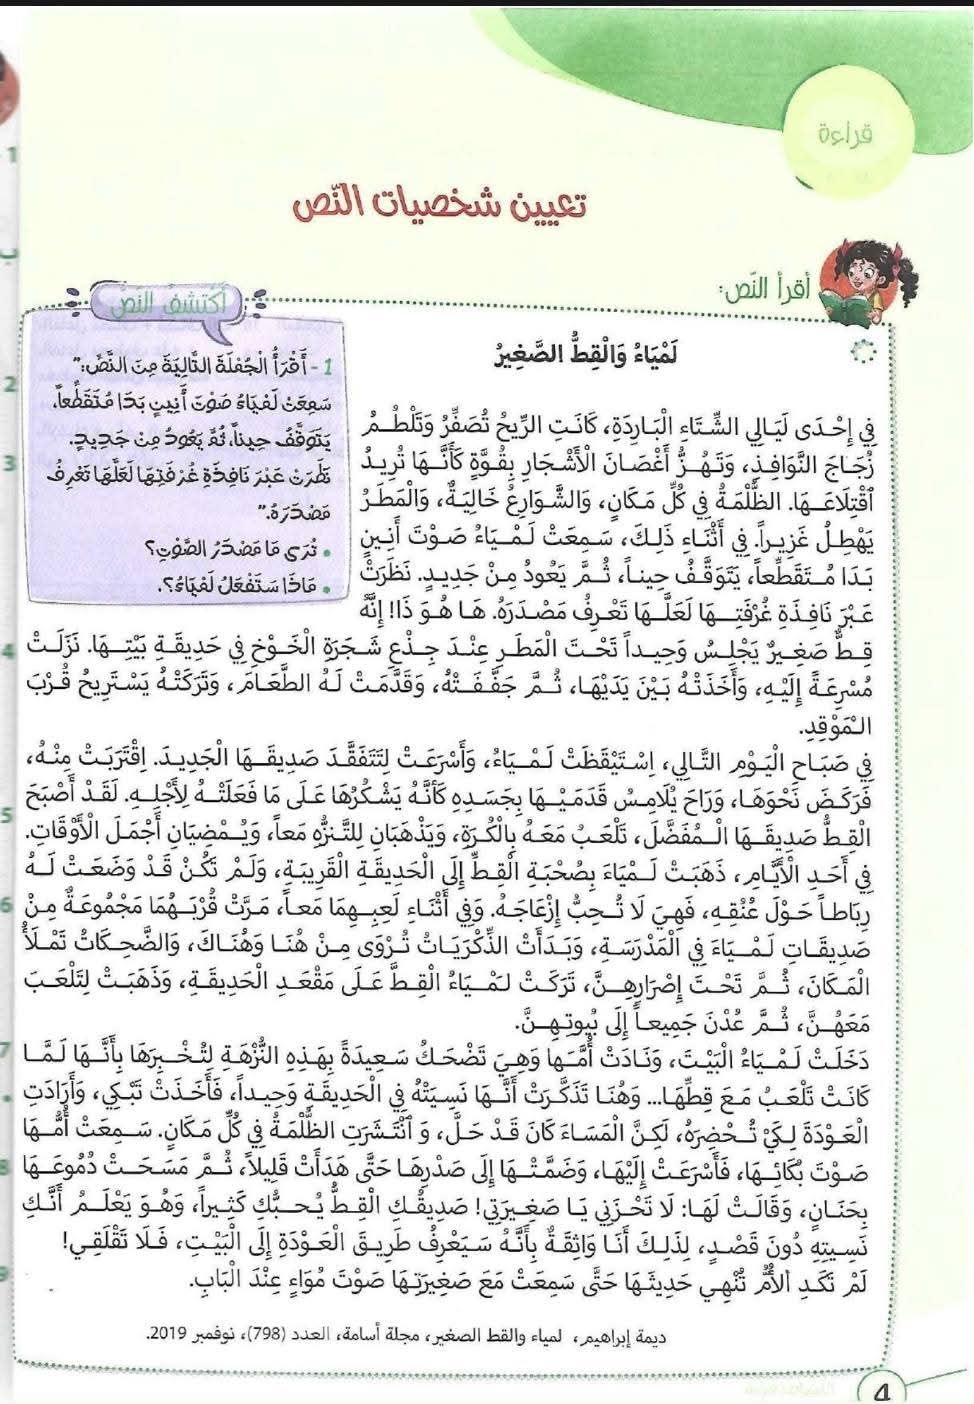 قراءة
تعيين شخصيات النّص
أقرأ النّص:
أكتشف النص
1- أَقْرَأُ الْجُمْلَةَ التَّالِيَةَ مِنَ النَّصِّ:"
سَمِعَتْ لَمْيَاءُ صَوْتَ أَنِينٍ بَدَا مُتَقَطِّعاً،
يَتَوَقَّفُ حِيناً، ثُمَّ يَعُودُ مِنْ جَدِيدٍ.
نَظَرَتْ عَبْرَ نَافِذَةِ غُرْفَتِهَا لَعَلَّهَا تَعْرِفُ
مَصْدَرَهُ."
• تُرَى مَا مَصْدَرُ الصَّوْتِ؟
• مَاذَا سَتَفْعَلُ لَمْيَاءُ؟.
لَمْيَاءُ وَالْقِطُّ الصَّغِيرُ
فِي إِحْدَى لَيَالِي الشِّتَاءِ الْبَارِدَةِ، كَانَتِ الرِّيحُ تُصَفِّرُ وَتَلْطُمُ
زُجَاجَ النَّوَافِذِ، وَتَهُزُّ أَغْصَانَ الْأَشْجَارِ بِقُوَّةٍ كَأَنَّهَا تُرِيدُ
اقْتِلَاعَهَا. الظُّلْمَةُ فِي كُلِّ مَكَانٍ، وَالشَّوَارِعُ خَالِيَةٌ، وَالْمَطَرُ
يَهْطِلُ غَزِيراً. فِي أَثْنَاءِ ذَلِكَ، سَمِعَتْ لَمْيَاءُ صَوْتَ أَنِينٍ
بَدَا مُتَقَطِّعاً، يَتَوَقَّفُ حِيناً، ثُمَّ يَعُودُ مِنْ جَدِيدٍ. نَظَرَتْ
عَبْرَ نَافِذَةِ غُرْفَتِهَا لَعَلَّهَا تَعْرِفُ مَصْدَرَهُ. هَا هُوَ ذَا! إِنَّهُ
قِطٌّ صَغِيرٌ يَجْلِسُ وَحِيداً تَحْتَ الْمَطَرِ عِنْدَ جِذْعِ شَجَرَةِ الْخَوْخِ فِي حَدِيقَةِ بَيْتِهَا. نَزَلَتْ
مُسْرِعَةً إِلَيْهِ، وَأَخَذَتْهُ بَيْنَ يَدَيْهَا، ثُمَّ جَفَّفَتْهُ، وَقَدَّمَتْ لَهُ الطَّعَامَ، وَتَرَكَتْهُ يَسْتَرِيحُ قُرْبَ
الْمَوْقِدِ.
فِي صَبَاحِ الْيَوْمِ التَّالِي، اِسْتَيْقَظَتْ لَمْيَاءُ، وَأَسْرَعَتْ لِتَتَفَقَّدَ صَدِيقَهَا الْجَدِيدَ. اِقْتَرَبَتْ مِنْهُ،
فَرَكَضَ نَحْوَهَا، وَرَاحَ يُلَامِسُ قَدَمَيْهَا بِجَسَدِهِ كَأَنَّهُ يَشْكُرُهَا عَلَى مَا فَعَلَتْهُ لِأَجْلِهِ. لَقَدْ أَصْبَحَ
الْقِطُّ صَدِيقَهَا الْمُفَضَّلَ، تَلْعَبُ مَعَهُ بِالْكُرَةِ، وَيَذْهَبَانِ لِلتَّنَزُّهِ مَعاً، وَيُمْضِيَانِ أَجْمَلَ الْأَوْقَاتِ.
فِي أَحَدِ الْأَيَّامِ، ذَهَبَتْ لَمْيَاءَ بِصُحْبَةِ الْقِطِّ إِلَى الْحَدِيقَةِ الْقَرِيبَةِ، وَلَمْ تَكُنْ قَدْ وَضَعَتْ لَهُ
رِبَاطاً حَوْلَ عُنُقِهِ، فَهِيَ لَا تُحِبُّ إِزْعَاجَهُ. وَفِي أَثْنَاءِ لَعِبِهِمَا مَعاً، مَرَّتْ قُرْبَهُمَا مَجْمُوعَةٌ مِنْ
صَدِيقَاتِ لَمْيَاءَ فِي الْمَدْرَسَةِ، وَبَدَأَتْ الذِّكْرَيَاتُ تُرْوَى مِنْ هُنَا وَهُنَاكَ، وَالضَّحِكَاتُ تَمْلَأُ
الْمَكَانَ، ثُمَّ تَحْتَ إِصْرَارِهِنَّ، تَرَكَتْ لَمْيَاءُ الْقِطَّ عَلَى مَقْعَدِ الْحَدِيقَةِ، وَذَهَبَتْ لِتَلْعَبَ
مَعَهُنَّ، ثُمَّ عُدْنَ جَمِيعاً إِلَى بُيوتِهِنَّ.
دَخَلَتْ لَمْيَاءُ الْبَيْتَ، وَنَادَتْ أُمَّهَا وَهِيَ تَضْحَكُ سَعِيدَةً بِهَذِهِ النُّزْهَةِ لِتُخْبِرَهَا بِأَنَّهَا لَمَّا
كَانَتْ تَلْعَبُ مَعَ قِطِّهَا... وَهُنَا تَذَكَّرَتْ أَنَّهَا نَسِيَتْهُ فِي الْحَدِيقَةِ وَحِيداً، فَأَخَذَتْ تَبْكِي، وَأَرَادَتِ
الْعَوْدَةَ لِكَيْ تُحْضِرَهُ، لَكِنَّ الْمَسَاءَ كَانَ قَدْ حَلَّ، وَ انْتَشَرَتِ الظُّلْمَةُ فِي كُلِّ مَكَانٍ. سَمِعَتْ أُمُّهَا
صَوْتَ بُكَائِهَا، فَأَسْرَعَتْ إِلَيْهَا، وَضَمَّتْهَا إِلَى صَدْرِهَا حَتَّى هَدَأَتْ قَلِيلاً، ثُمَّ مَسَحَتْ دُمُوعَهَا
بِحَنَانٍ، وَقَالَتْ لَهَا: لَا تَحْزَنِي يَا صَغِيرَتِي! صَدِيقُكِ الْقِطُّ يُحِبُّكِ كَثِيراً، وَهُوَ يَعْلَمُ أَنَّكِ
نَسِيتِهِ دُونَ قَصْدٍ، لِذَلِكَ أَنَا وَاثِقَةٌ بِأَنَّهُ سَيَعْرِفُ طَرِيقَ الْعَوْدَةِ إِلَى الْبَيْتِ، فَلَا تَقْلَقِي!
لَمْ تَكَدِ الْأُمُّ تُنْهِي حَدِيثَهَا حَتَّى سَمِعَتْ مَعَ صَغِيرَتِهَا صَوْتَ مُوَاءٍ عِنْدَ الْبَابِ.
ديمة إبراهيم، لمياء والقط الصغير، مجلة أسامة، العدد (798)، نوفمبر 2019.
4